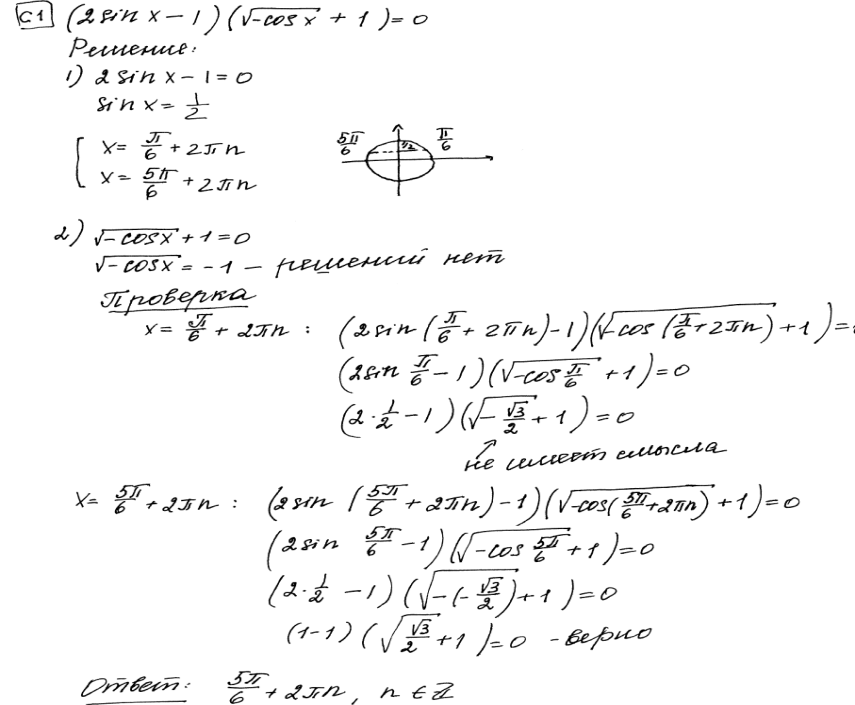 C1 (2sin x − 1)(√(−cos x) + 1) = 0
Решение:
1) 2 sin x − 1 = 0
sin x = 1/2
[ x = π/6 + 2πn
x = 5π/6 + 2πn
5π/6 1/2 π/6
2) √(−cos x) + 1 = 0
√(−cos x) = −1 — решений нет
Проверка
x = π/6 + 2πn : (2sin(π/6 + 2πn) − 1)(√(−cos(π/6 + 2πn)) + 1) =
(2sin π/6 − 1)(√(−cos π/6) + 1) = 0
(2 · 1/2 − 1)(√(−√3/2) + 1) = 0
не имеет смысла
x = 5π/6 + 2πn : (2sin(5π/6 + 2πn) − 1)(√(−cos(5π/6 + 2πn)) + 1) = 0
(2sin 5π/6 − 1)(√(−cos 5π/6) + 1) = 0
(2 · 1/2 − 1)(√(−(−√3/2)) + 1) = 0
(1−1)(√(√3/2) + 1) = 0 - верно
Ответ: 5π/6 + 2πn, n ∈ Z